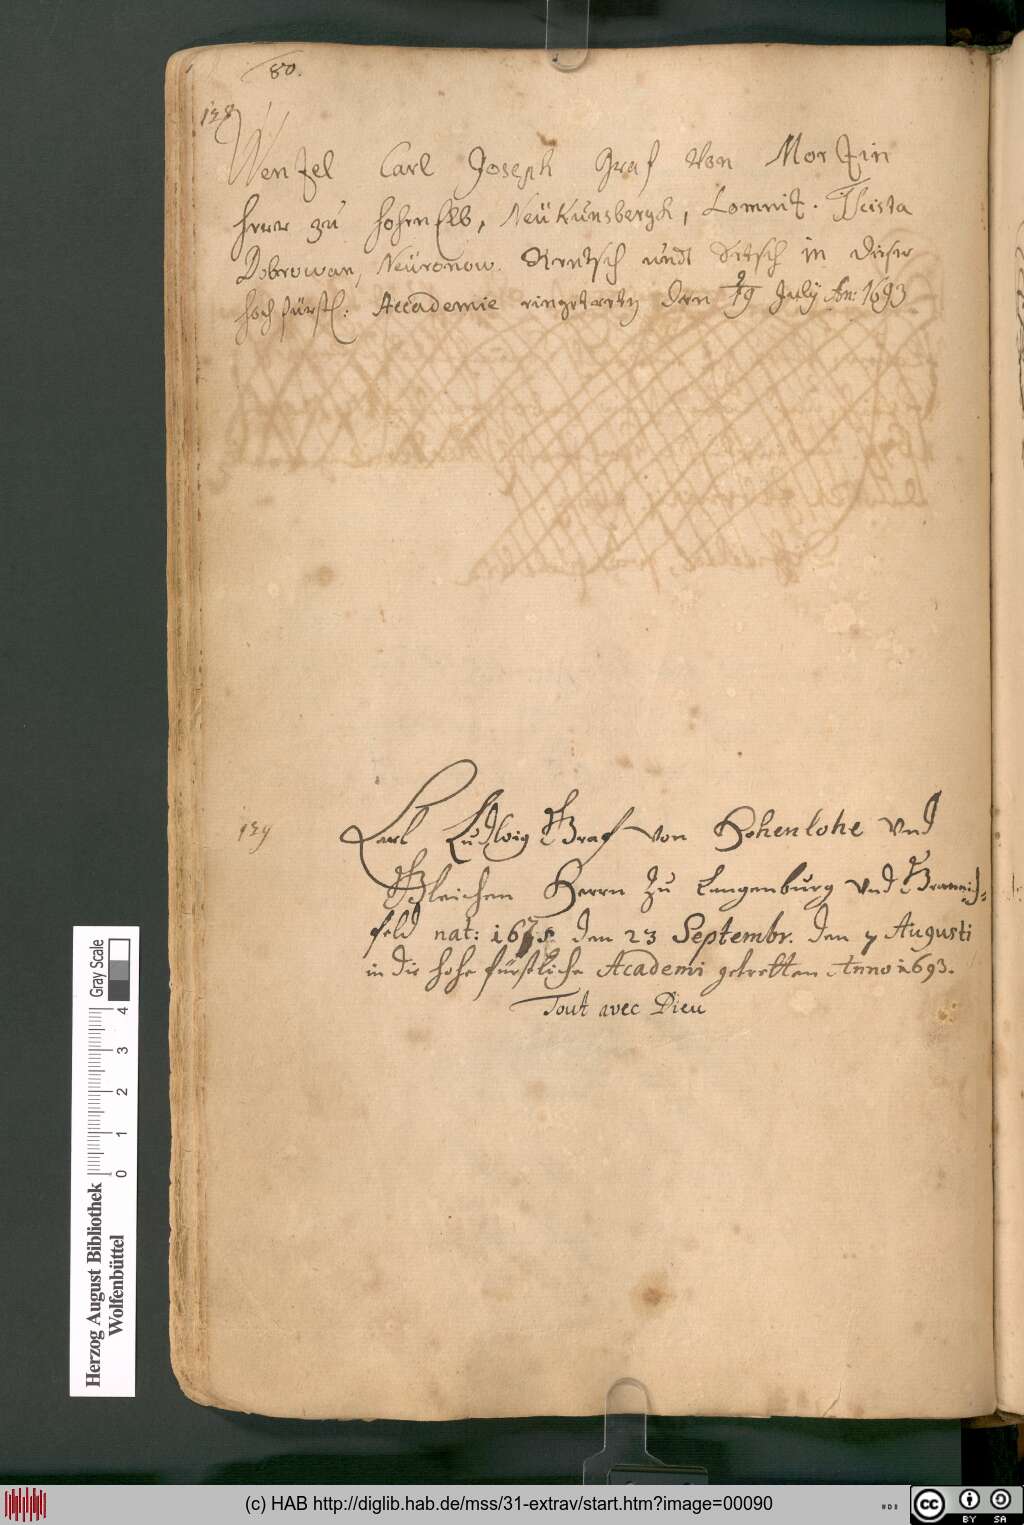 80.
138
Wentzel Carl Joseph Graf Von Mortzin
Herr zu Hohen Elb, Neü Kunsbergk, Lomnitz.
Dobrowan, Neüronow. undt in dieser
Hochfürstl: Accademie eingetretn den July An: 1693
139
Carl Ludwig Graf von Hohenlohe und
Gleichen Herrn zu Langenburg und Cranich=
feld nat: den 23 Septembr. den 7 Augusti
in die hohe fürstliche Academi getretten Anno 1693.
Tout avec Dieu
Herzog August Bibliothek
Wolfenbüttel
Gray Scale
0 1 2 3 4
(c) HAB http://diglib.hab.de/mss/31-extrav/start.htm?image=00090
cc BY SA